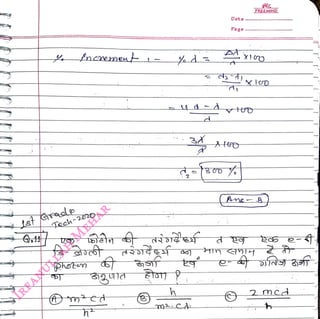 Date
Page
% Increment :- % λ = Δλ/λ × 100
= λ₂-λ₁/λ₁ × 100
= 4λ-λ/λ × 100
3λ/λ × 100
= 300 %
Ans - B
1st Grade
Tech-2020
Q.11 एक फोटोन की तरंगदैर्ध्य व एक e-की
तरंगदैर्ध्य का मान समान है तो
photon की ऊर्जा एवं e-की गतिज ऊर्जा
का अनुपात होगा ?
Ⓐ m²cλ/h² Ⓑ h/m²cλ Ⓒ 2mcλ/h
IRFANULLAH MEHAR